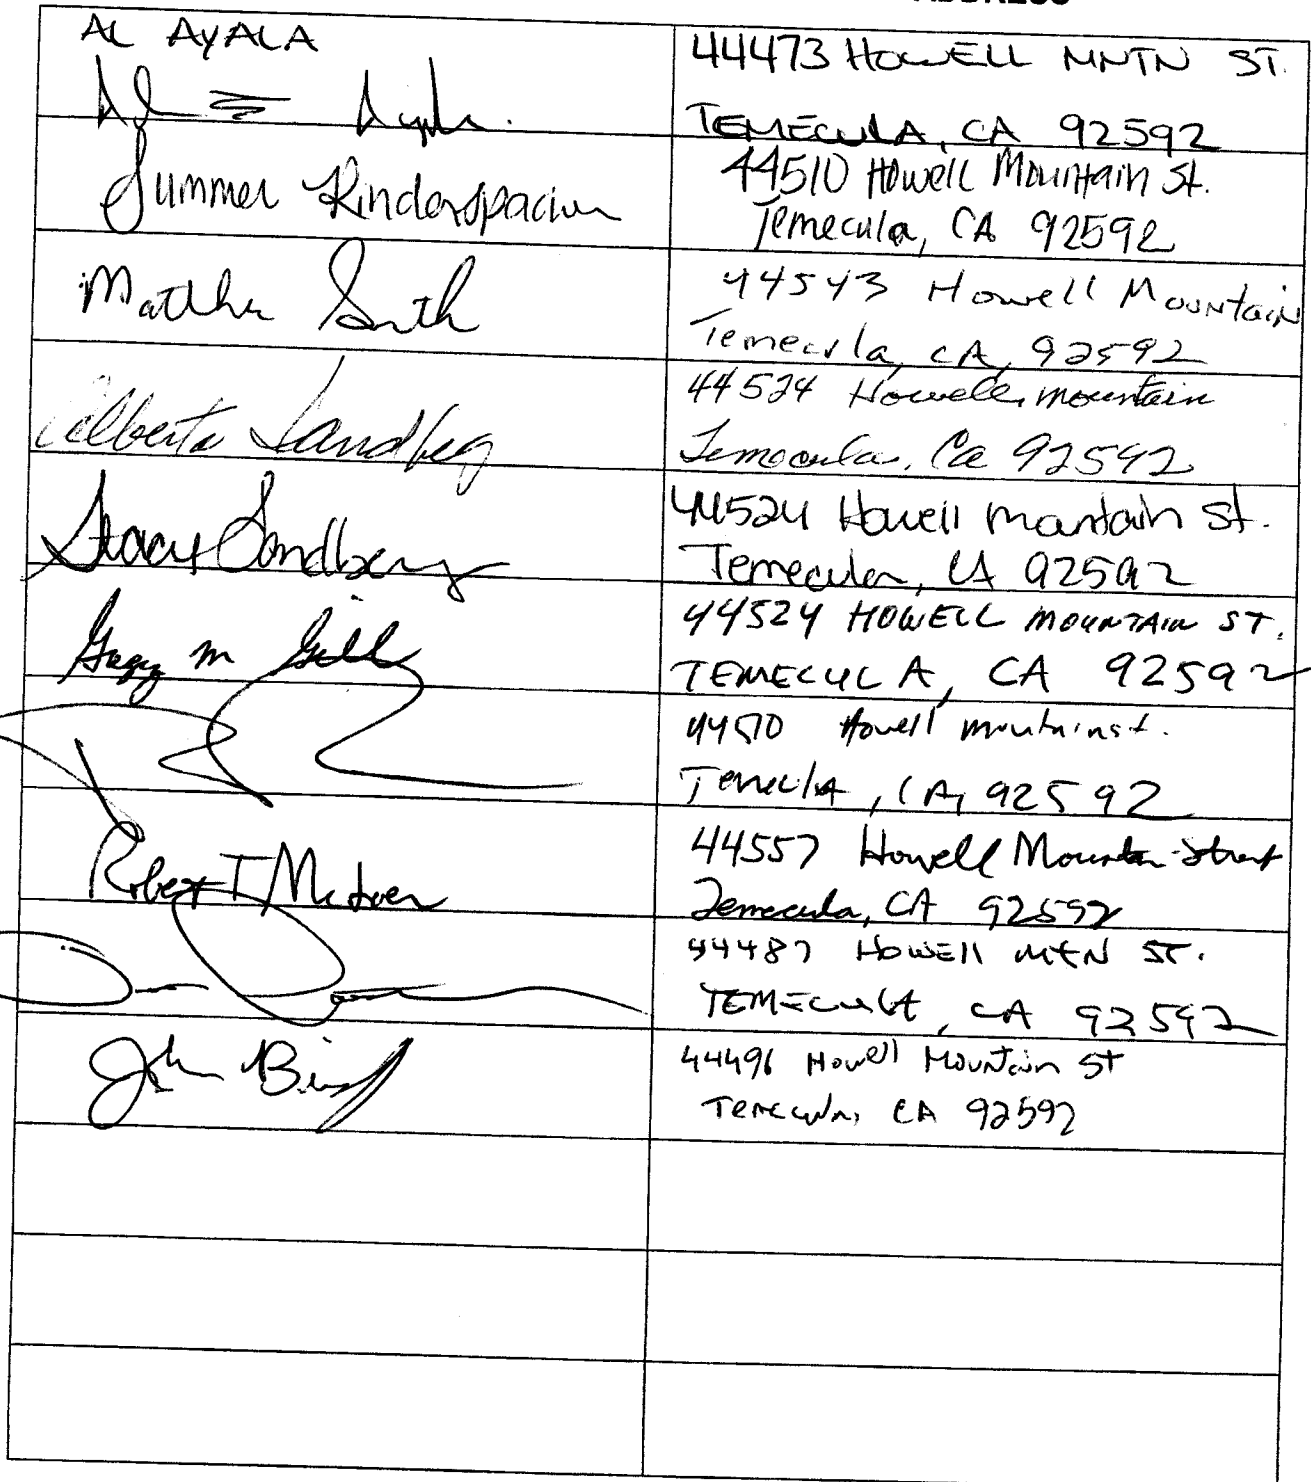 ADDRESS
AL AYALA
44473 HOWELL MNTN ST.
TEMECULA, CA 92592
Summer
44510 Howell Mountain St.
Temecula, CA 92592
Matthew Smith
44543 Howell Mountain
Temecula, CA, 92592
Alberta Sandberg
44524 Howell mountain
Temecula, Ca 92592
Stacy Sandberg
44524 Howell Mountain St.
Temecula, CA 92592
Gary m Gill
44524 HOWELL MOUNTAIN ST.
TEMECULA, CA 92592
Howell mountain st.
Temecula, CA, 92592
Robert T
44557 Howell Mountain Street
Temecula, CA 92592
44487 HOWELL MTN ST.
TEMECULA, CA 92592
John
44496 Howell Mountain St
Temecula, CA 92592